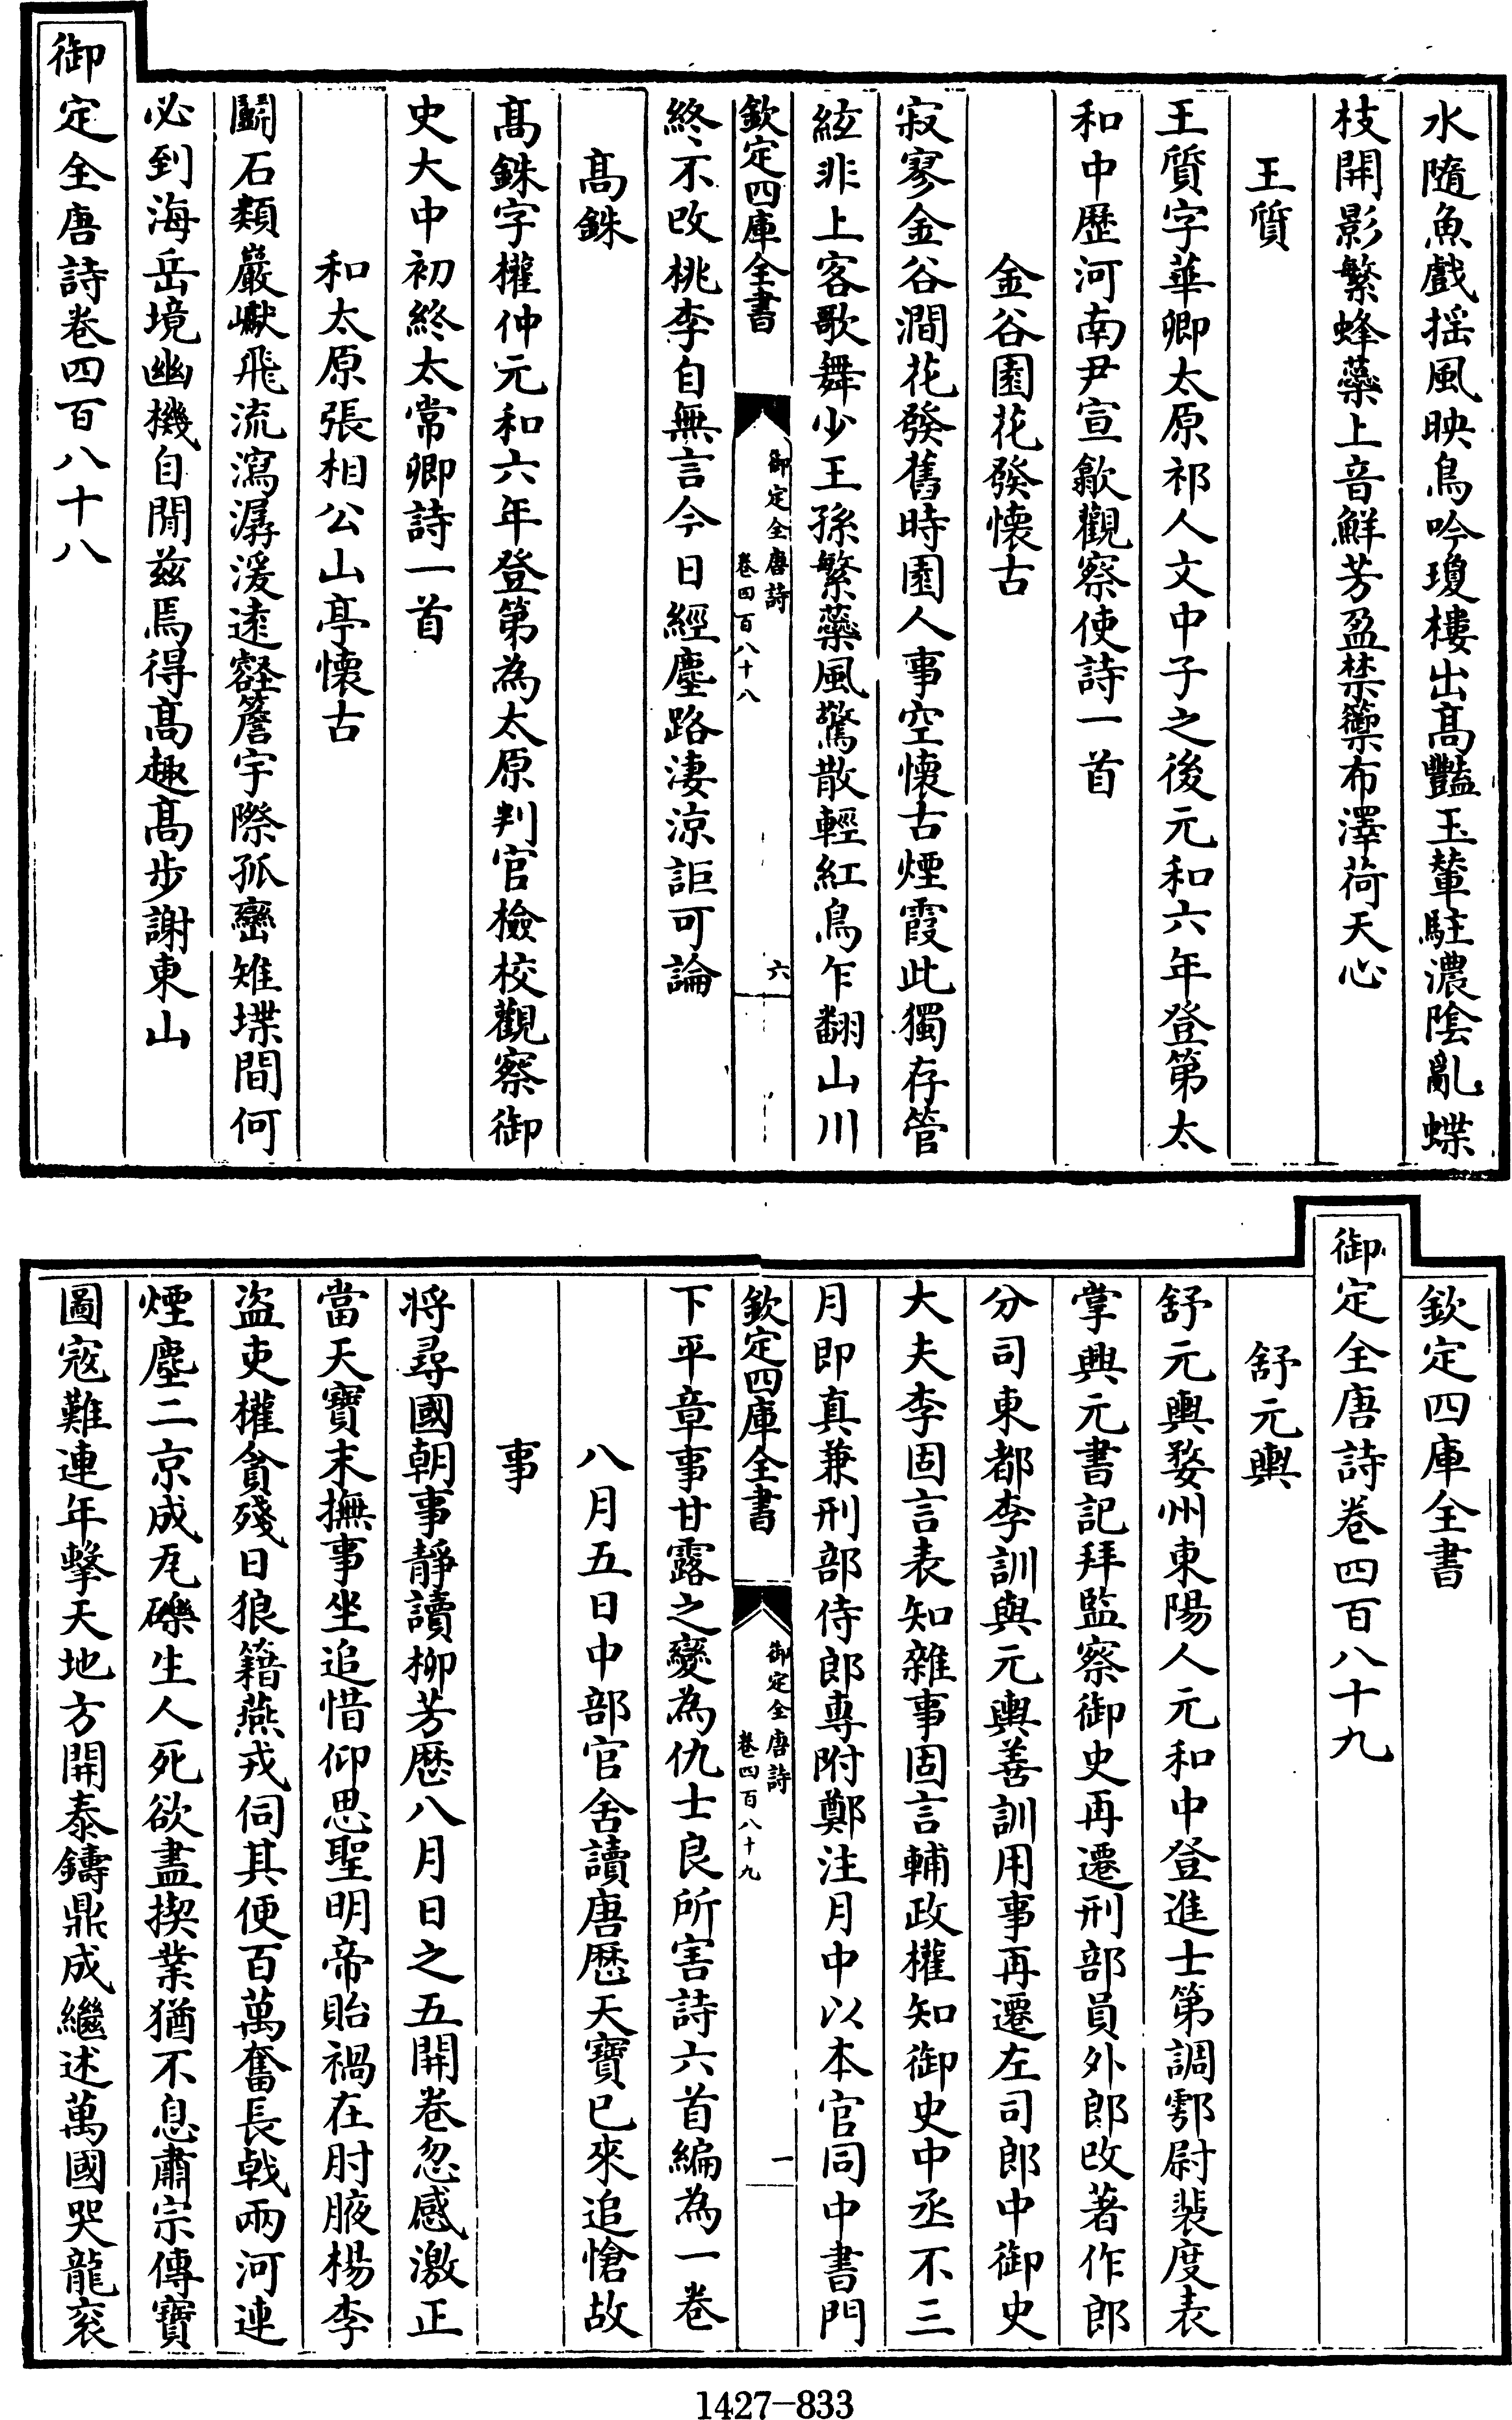 水隨魚戲揺風映鳥吟瓊樓出髙豔玉輦駐濃陰亂蝶
枝開影繁蜂蘂上音鮮芳盈禁籞布澤荷天心
王質
王質字華卿太原祁人文中子之後元和六年登第太
和中歴河南尹宣歙觀察使詩一首
金谷園花發懐古
寂寥金谷澗花發舊時園人事空懐古煙霞此獨存管
絃非上客歌舞少王孫繁蘂風驚散輕紅鳥乍翻山川
欽定四庫全書
御定全唐詩
卷四百八十八
六
終不改桃李自無言今日經塵路淒涼詎可論
髙銖
髙銖字權仲元和六年登第為太原判官檢校觀察御
史大中初終太常卿詩一首
和太原張相公山亭懐古
鬭石類巖巘飛流瀉潺湲逺壑簷宇際孤巒雉堞間何
必到海岳境幽機自閒兹焉得髙趣髙步謝東山
御定全唐詩卷四百八十八
欽定四庫全書
御定全唐詩卷四百八十九
舒元輿
舒元輿婺州東陽人元和中登進士第調鄠尉裴度表
掌興元書記拜監察御史再遷刑部員外郎改著作郎
分司東都李訓與元輿善訓用事再遷左司郎中御史
大夫李固言表知雜事固言輔政權知御史中丞不三
月即真兼刑部侍郎專附鄭注月中以本官同中書門
欽定四庫全書
御定全唐詩
卷四百八十九
一
下平章事甘露之變為仇士良所害詩六首編為一卷
八月五日中部官舍讀唐歴天寶已來追愴故
事
將尋國朝事靜讀柳芳歴八月日之五開卷忽感激正
當天寶末撫事坐追惜仰思聖明帝貽禍在肘腋楊李
盜吏權貪殘日狼籍燕戎伺其便百萬奮長戟兩河連
煙塵二京成瓦礫生人死欲盡揳業猶不息肅宗傳寶
圖寇難連年擊天地方開泰鑄鼎成繼述萬國哭龍衮
1427-833